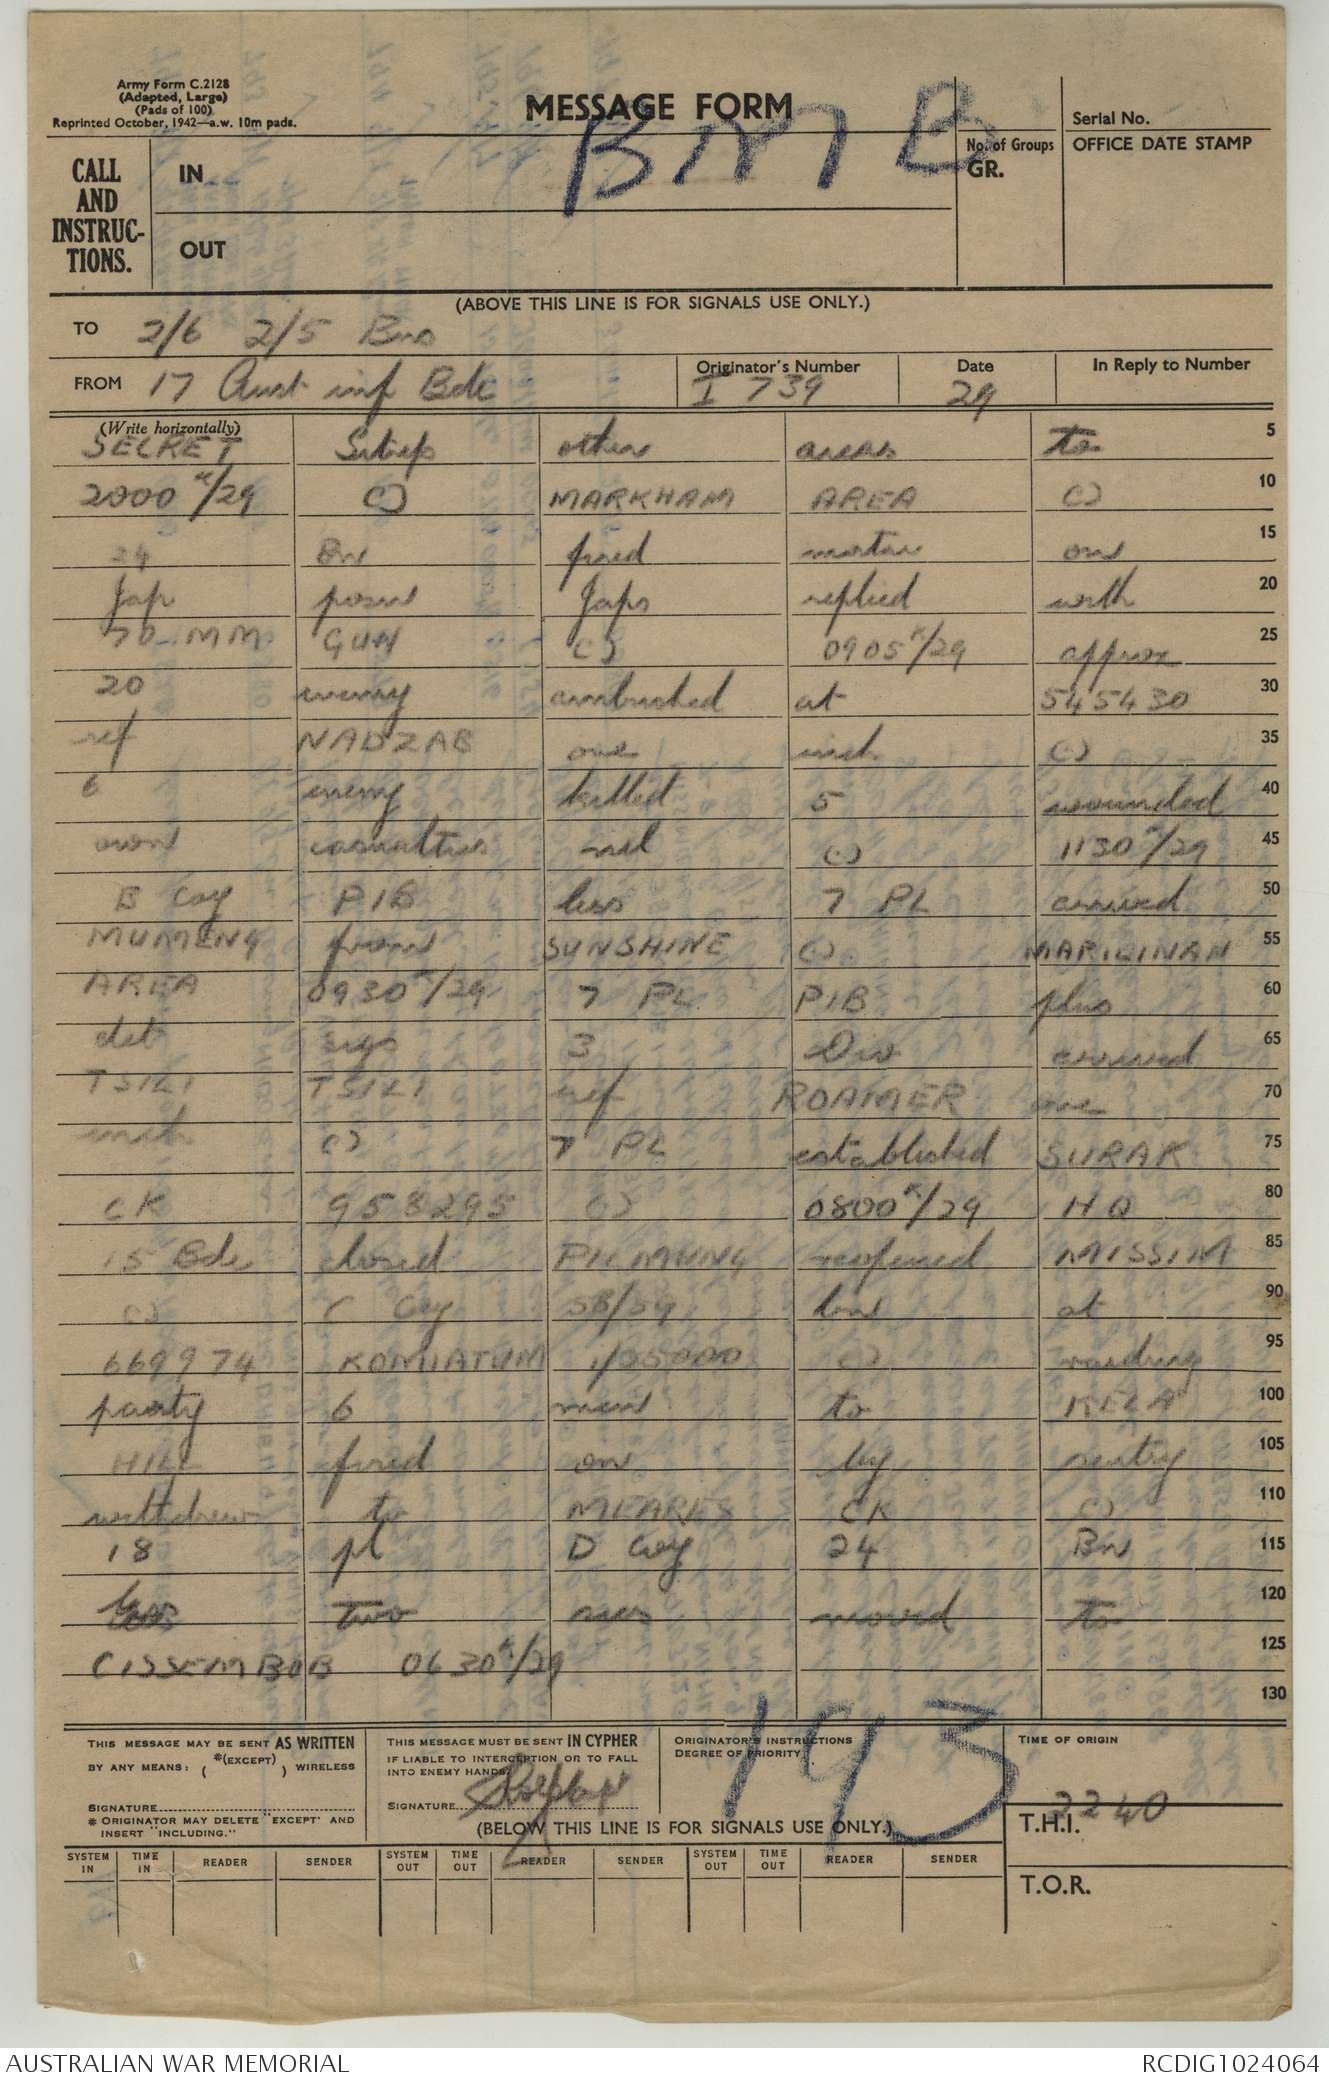 Army Form C.2128
(Adapted, Large)
(Pads of 100)
Reprinted October, 1942—a.w. 10m pads.
MESSAGE FORM
BM B
Serial No.
CALL AND INSTRUC-TIONS.
IN
OUT
No. of Groups
GR.
OFFICE DATE STAMP
(ABOVE THIS LINE IS FOR SIGNALS USE ONLY.)
TO 2/6 2/5 Bns
FROM 17 Aust inf Bde
Originator's Number I 739
Date 29
In Reply to Number
(Write horizontally)
SECRET Sitreps other areas to 5
2000 K/29 (-) MARKHAM AREA (-) 10
24 Bn fired mortar on 15
Jap posn Japs replied with 20
70 MM GUN (-) 0905 K/29 approx 25
20 enemy ambushed at 545430 30
ref NADZAB one inch (-) 35
6 enemy killed 5 wounded 40
own casualties nil (-) 1130 K/29 45
B Coy PIB less 7 PL arrived 50
MUMENG from SUNSHINE (-) MARILINAN 55
AREA 0930 K/29 7 PL PIB plus 60
det sigs 3 Div arrived 65
TSILI TSILI ref ROAMER one 70
inch (-) 7 PL established SURAK 75
CK 958295 (-) 0800 K/29 HQ 80
15 Bde closed PILMUNG reopened MISSIM 85
(-) C Coy 58/59 bn at 90
669974 KOMIATUM 1/25000 (-) raiding 95
party 6 men to KELA 100
HILL fired on by sentry 105
withdrew to MEARES CK (-) 110
18 pl D Coy 24 Bn 115
less two secs moved to 120
CISSEMBOB 0630 K/29 125
130
THIS MESSAGE MAY BE SENT AS WRITTEN
BY ANY MEANS: ( *(EXCEPT) ) WIRELESS
SIGNATURE
* ORIGINATOR MAY DELETE "EXCEPT" AND
INSERT "INCLUDING."
THIS MESSAGE MUST BE SENT IN CYPHER
IF LIABLE TO INTERCEPTION OR TO FALL
INTO ENEMY HANDS.
SIGNATURE
ORIGINATOR'S INSTRUCTIONS
DEGREE OF PRIORITY
193
TIME OF ORIGIN
2240
(BELOW THIS LINE IS FOR SIGNALS USE ONLY.)
T.H.I.
SYSTEM IN TIME IN READER SENDER SYSTEM OUT TIME OUT READER SENDER SYSTEM OUT TIME OUT READER SENDER
T.O.R.
AUSTRALIAN WAR MEMORIAL
RCDIG1024064